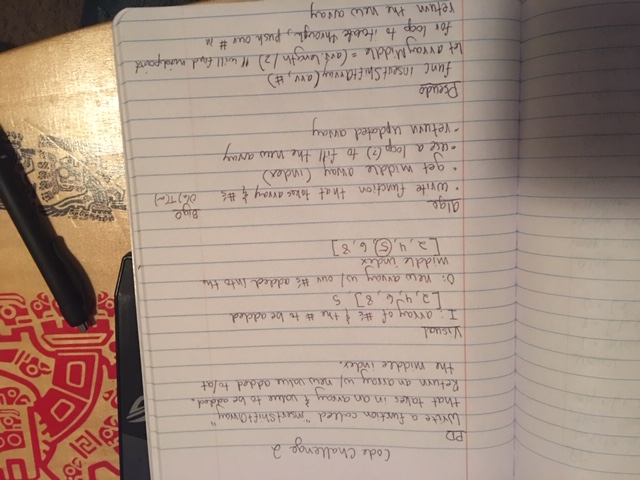 Code Challenge 2
PD
Write a function called "insertShiftArray"
that takes in an array & value to be added.
Return an array w/ new value added to/at
the middle index.
Visual
I: array of #'s & the # to be added
[2, 4, 6, 8], 5
O: new array w/ our #'s added into the
middle index
[2, 4, 5, 6, 8]
algo
Big O
• write function that takes array & #'s
• get middle away (index)
• use a loop (?) to fill the new array
• return updated array
Pseudo
func insertShiftArray (arr, #)
let arrayMiddle = (arr.length / 2) // will find midpoint
for loop to iterate through, push our # in
return the new array